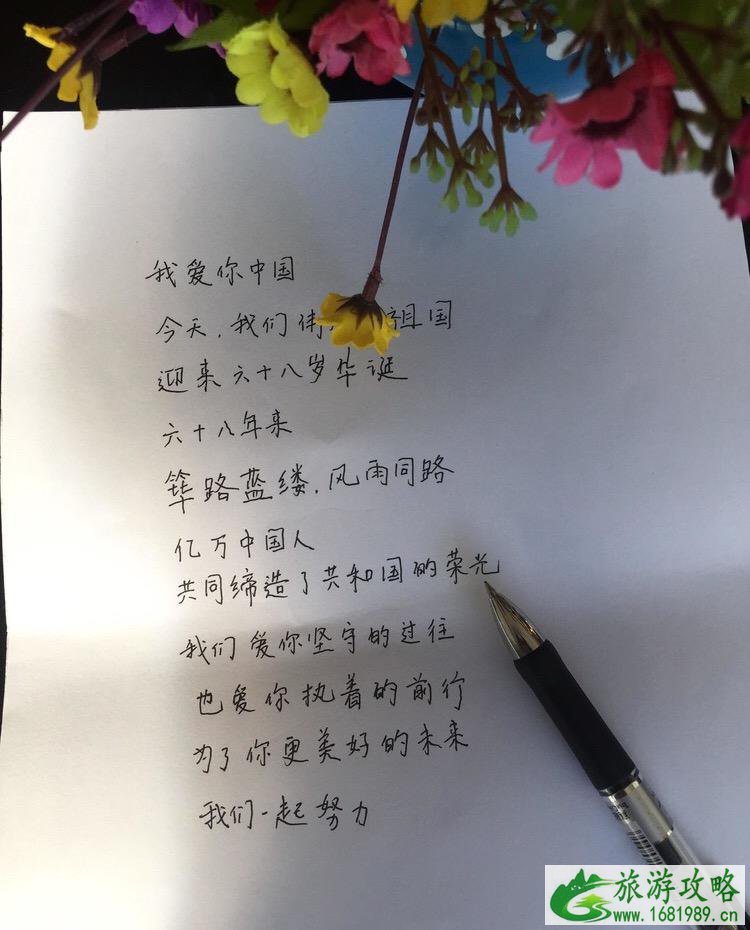 我爱你中国
今天,我们 祖国
迎来六十八岁华诞
六十八年来
筚路蓝缕,风雨同路
亿万中国人
共同缔造了共和国的荣光
我们爱你坚守的过往
也爱你执着的前行
为了你更美好的未来
我们一起努力
旅游攻略
www.1681989.cn